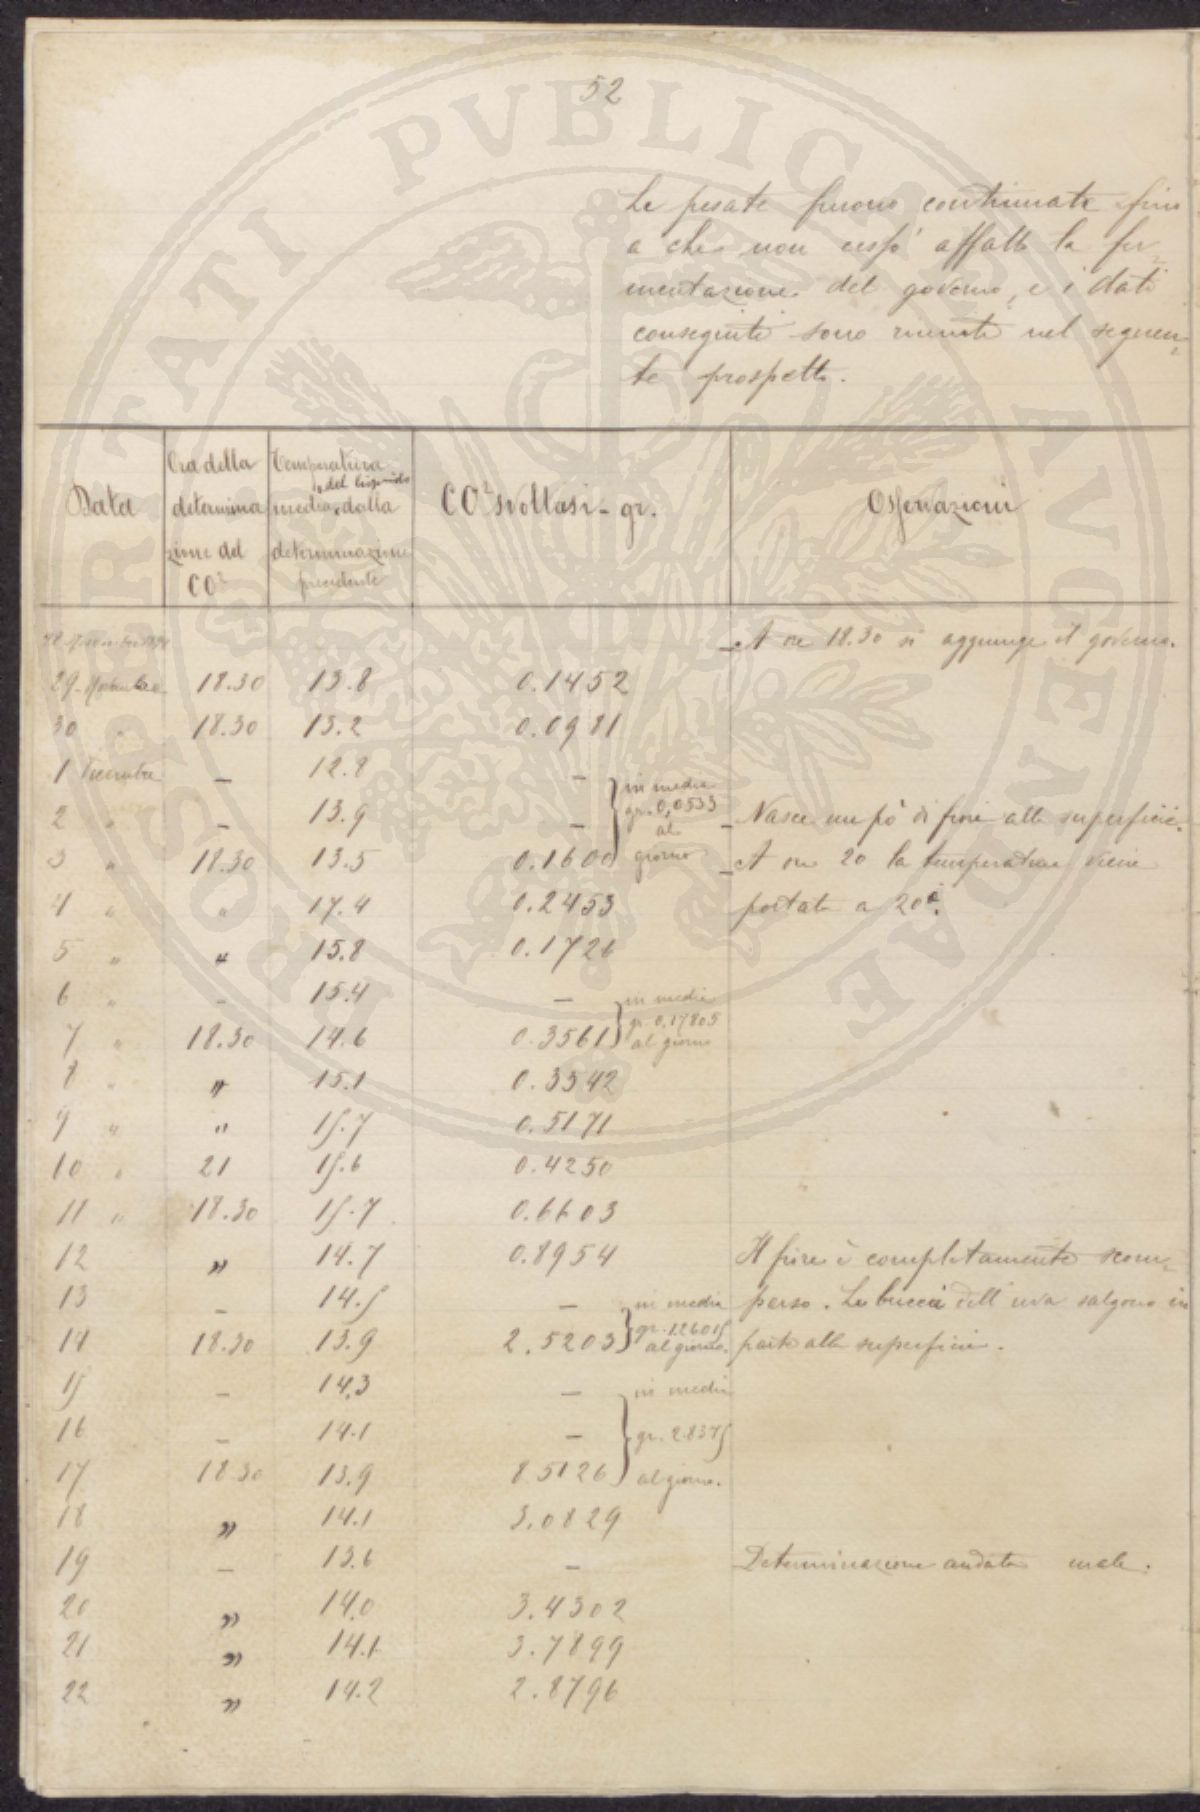 52
Le pesate furono continuate fino
a che non cessò affatto la fer-
mentazione del governo, e i dati
conseguiti sono riuniti nel seguen-
te prospetto.
Data | Ora della determinazione del CO² | Temperatura media del liquido dalla determinazione precedente | CO² svoltasi - gr. | Osservazioni
28 Novembre 1894 A ore 18.30 si aggiunge il governo.
29. Novembre 18.30 13.8 0.1452
30 " 18.30 13.2 0.0981
1 Dicembre — 12.8 — in media
2 " — 13.9 — gr. 0,0533 al — Nasce un pò di fiore alla superficie.
3 " 18.30 13.5 0.1600 giorno — A ore 20 la temperatura viene
4 " " 17.4 0.2453 portata a 20°.
5 " " 15.8 0.1726
6 " — 15.4 — in media
7 " 18.30 14.6 0.3561 gr. 0,17805 al giorno
8 " " 15.1 0.3542
9 " " 15.7 0.5171
10 " 21 15.6 0.4250
11 " 18.30 15.7 0.6603
12 " 14.7 0.8954 Il fiore è completamente scom-
13 — 14.5 — in media parso. Le buccie dell'uva salgono in
14 18.30 13.9 2.5203 gr. 1.26015 al giorno. parte alla superficie.
15 — 14.3 — in media
16 — 14.1 — gr. 2.8375
17 18.30 13.9 8.5126 al giorno.
18 " 14.1 3.0829
19 — 13.6 — Determinazione andata male.
20 " 14.0 3.4302
21 " 14.1 3.7899
22 " 14.2 2.8796
PROSPERITATI PVBLICAE AVGENDAE